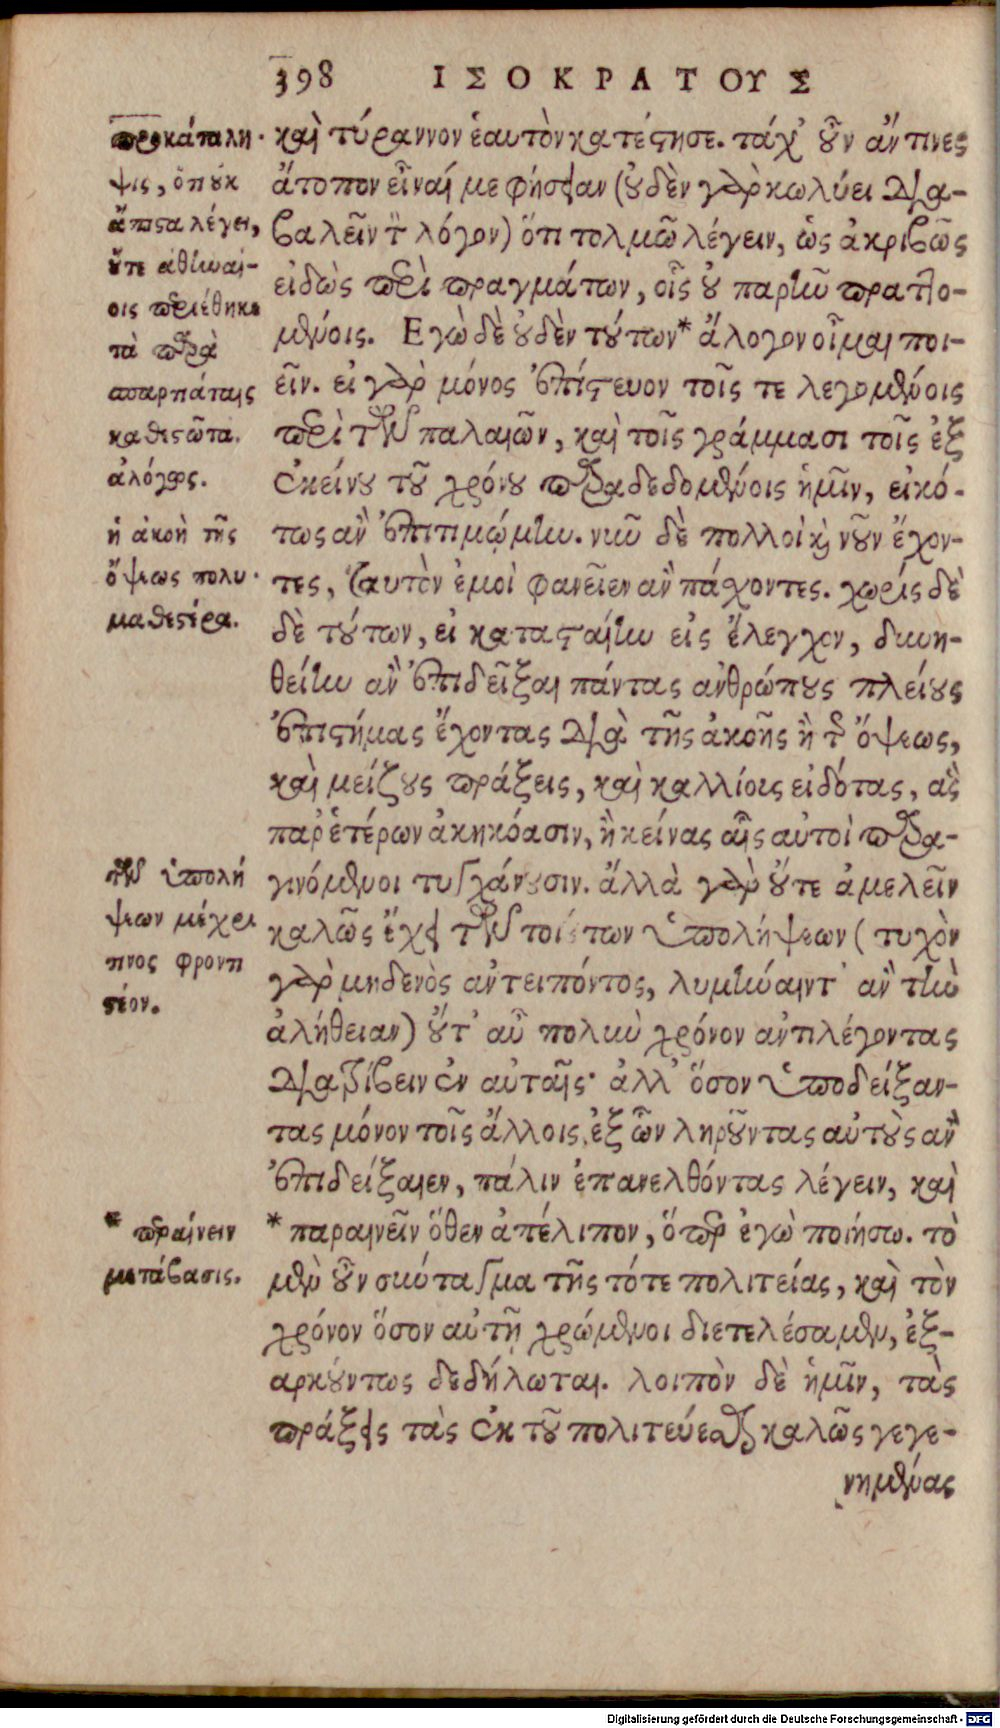 398 ΙΣΟΚΡΑΤΟΥΣ
καὶ τύραννον ἑαυτὸν κατέστησε. τάχ' οὖν ἄν τινες
ἄτοπον εἶναί με φήσειαν (οὐδὲν γὰρ κωλύει δια-
βαλεῖν τὸν λόγον) ὅτι τολμῶ λέγειν, ὡς ἀκριβῶς
εἰδὼς περὶ πραγμάτων, οἷς οὐ παρῆν πραττο-
μένοις. Εγὼ δὲ οὐδὲν τούτων* ἄλογον οἶμαι ποι-
εῖν. εἰ γὰρ μόνος ἐπίστευον τοῖς τε λεγομένοις
περὶ τῶν παλαιῶν, καὶ τοῖς γράμμασι τοῖς ἐξ
ἐκείνου τοῦ χρόνου παραδεδομένοις ἡμῖν, εἰκό-
τως ἂν ἐπιτιμῴμην. νῦν δὲ πολλοὶ καὶ νοῦν ἔχον-
τες, ταυτὸν ἐμοὶ φανεῖεν ἂν πάχοντες. χωρὶς δὲ
δὲ τούτων, εἰ κατασταίην εἰς ἔλεγχον, δυνη-
θείην ἂν ἐπιδεῖξαι πάντας ἀνθρώπους πλείους
ἐπιστήμας ἔχοντας διὰ τῆς ἀκοῆς ἢ τῆς ὄψεως,
καὶ μείζους πράξεις, καὶ καλλίους εἰδότας, ἃς
παρ' ἑτέρων ἀκηκόασιν, ἢ κείνας αἷς αὐτοὶ παρα-
γινόμενοι τυγχάνουσιν. ἀλλὰ γὰρ οὔτε ἀμελεῖν
καλῶς ἔχει τῶν τοιούτων ὑπολήψεων (τυχὸν
γὰρ μηδενὸς ἀντειπόντος, λυμήναιντ' ἂν τὴν
ἀλήθειαν) οὔτ' αὖ πολὺν χρόνον ἀντιλέγοντας
διατρίβειν ἐν αὐταῖς· ἀλλ' ὅσον ὑποδείξαν-
τας μόνον τοῖς ἄλλοις, ἐξ ὧν ληροῦντας αὐτοὺς ἂν
ἐπιδείξαιεν, πάλιν ἐπανελθόντας λέγειν, καὶ
* παραινεῖν ὅθεν ἀπέλιπον, ὅπερ ἐγὼ ποιήσω. τὸ
μὲν οὖν σύνταγμα τῆς τότε πολιτείας, καὶ τὸν
χρόνον ὅσον αὐτῇ χρώμενοι διετελέσαμεν, ἐξ-
αρκούντως δεδήλωται. λοιπὸν δὲ ἡμῖν, τὰς
πράξεις τὰς ἐκ τοῦ πολιτεύεσθαι καλῶς γεγε-
νημένας
προκατάλη-
ψις, ὅτι οὐκ
ἄπιστα λέγει,
οὔτε ἀθηναί-
οις περιέθηκε
τὰ παρὰ
σπαρτιάταις
καθεστῶτα.
ἀλόγως.
ἡ ἀκοὴ τῆς
ὄψεως πολυ-
μαθεστέρα.
τῶν ὑπολή
ψεων μέχρι
τινος φροντι
στέον.
* περαίνειν
μετάβασις.
Digitalisierung gefördert durch die Deutsche Forschungsgemeinschaft - DFG